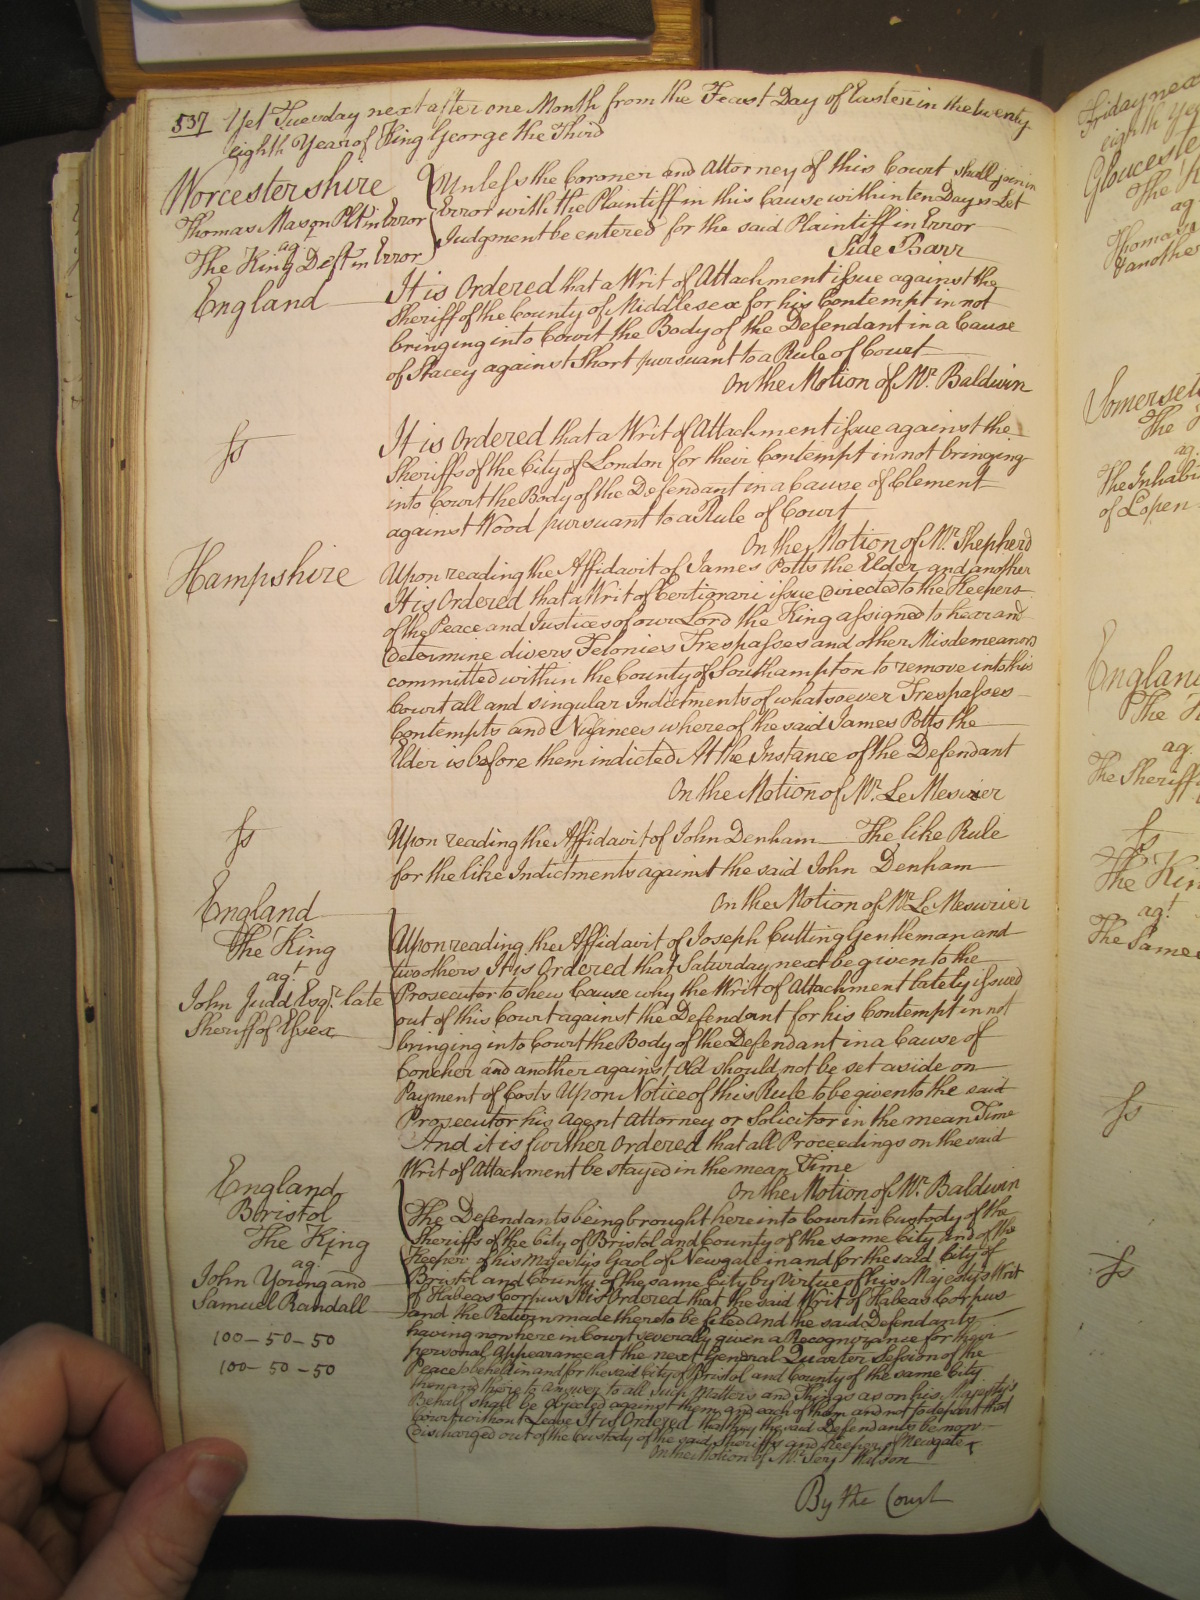 537 Yet Tuesday next after one Month from the Feast Day of Easter in the twenty
eighth Year of King George the Third
Worcestershire
Thomas Mason Plt in Error
agt
The King Deft in Error
Unless the Coroner and Attorney of this Court shall join in
Error with the Plaintiff in this Cause within ten Days Let
Judgment be entered for the said Plaintiff in Error
Side Barr
England
It is Ordered that a Writ of Attachment issue against the
Sheriff of the County of Middlesex for his Contempt in not
bringing into Court the Body of the Defendant in a Cause
of Stacey against Short pursuant to a Rule of Court
On the Motion of Mr. Baldwin
Ss
It is Ordered that a Writ of Attachment issue against the
Sheriffs of the City of London for their Contempt in not bringing
into Court the Body of the Defendant in a Cause of Clement
against Wood pursuant to a Rule of Court
On the Motion of Mr. Shepherd
Hampshire
Upon reading the Affidavit of James Potts the Elder and another
It is Ordered that a Writ of Certiorari issue Directed to the Keepers
of the Peace and Justices of our Lord the King assigned to hear and
determine divers Felonies Trespasses and other Misdemeanors
committed within the County of Southampton to remove into this
Court all and singular Indictments of whatsoever Trespasses
Contempts and Nusances whereof the said James Potts the
Elder is before them indicted At the Instance of the Defendant
On the Motion of Mr. Le Mesurier
Ss
Upon reading the Affidavit of John Denham The like Rule
for the like Indictments against the said John Denham
On the Motion of Mr. Le Mesurier
England
The King
agt
John Judd Esqr. late
Sheriff of Essex
Upon reading the Affidavit of Joseph Cutting Gentleman and
two others It is Ordered that Saturday next be given to the
Prosecutor to shew Cause why the Writ of Attachment lately issued
out of this Court against the Defendant for his Contempt in not
bringing into Court the Body of the Defendant in a Cause of
and another against Old should not be set aside on
Payment of Costs Upon Notice of this Rule to be given to the said
Prosecutor his Agent Attorney or Solicitor in the mean Time
And it is further Ordered that all Proceedings on the said
Writ of Attachment be stayed in the mean Time
On the Motion of Mr. Baldwin
England
Bristol
The King
ag.
John Young and
Samuel Randall
100 - 50 - 50
100 - 50 - 50
The Defendants being brought here into Court in Custody of the
Sheriffs of the City of Bristol and County of the same City and of the
Keeper of his Majesty's Gaol of Newgate in and for the said City of
Bristol and County of the same City by Virtue of his Majesty's Writ
of Habeas Corpus It is Ordered that the said Writ of Habeas Corpus
and the Return made thereto be filed And the said Defendants
having now here in Court severally given a Recognizance for their
personal Appearance at the next General Quarter Session of the
Peace to be held in and for the said City of Bristol and County of the same City
then and there to answer to all Such Matters and Things as on his Majesty's
Behalf shall be objected against them and each of them and not to depart that
Court without Leave It is Ordered that they the said Defendants be now
discharged out of the Custody of the said Sheriffs and Keeper of Newgate
On the Motion of Mr. Serjt Wilson
By the Court
Friday nex
eighth Ye
Glouceste
The K
ag
Thomas
& another
Somerset
The
ag.
The Inhabi
of Lopen
England
The
ag.
The Sheriff
Ss
The Kin
agt
The Same
Ss
Ss